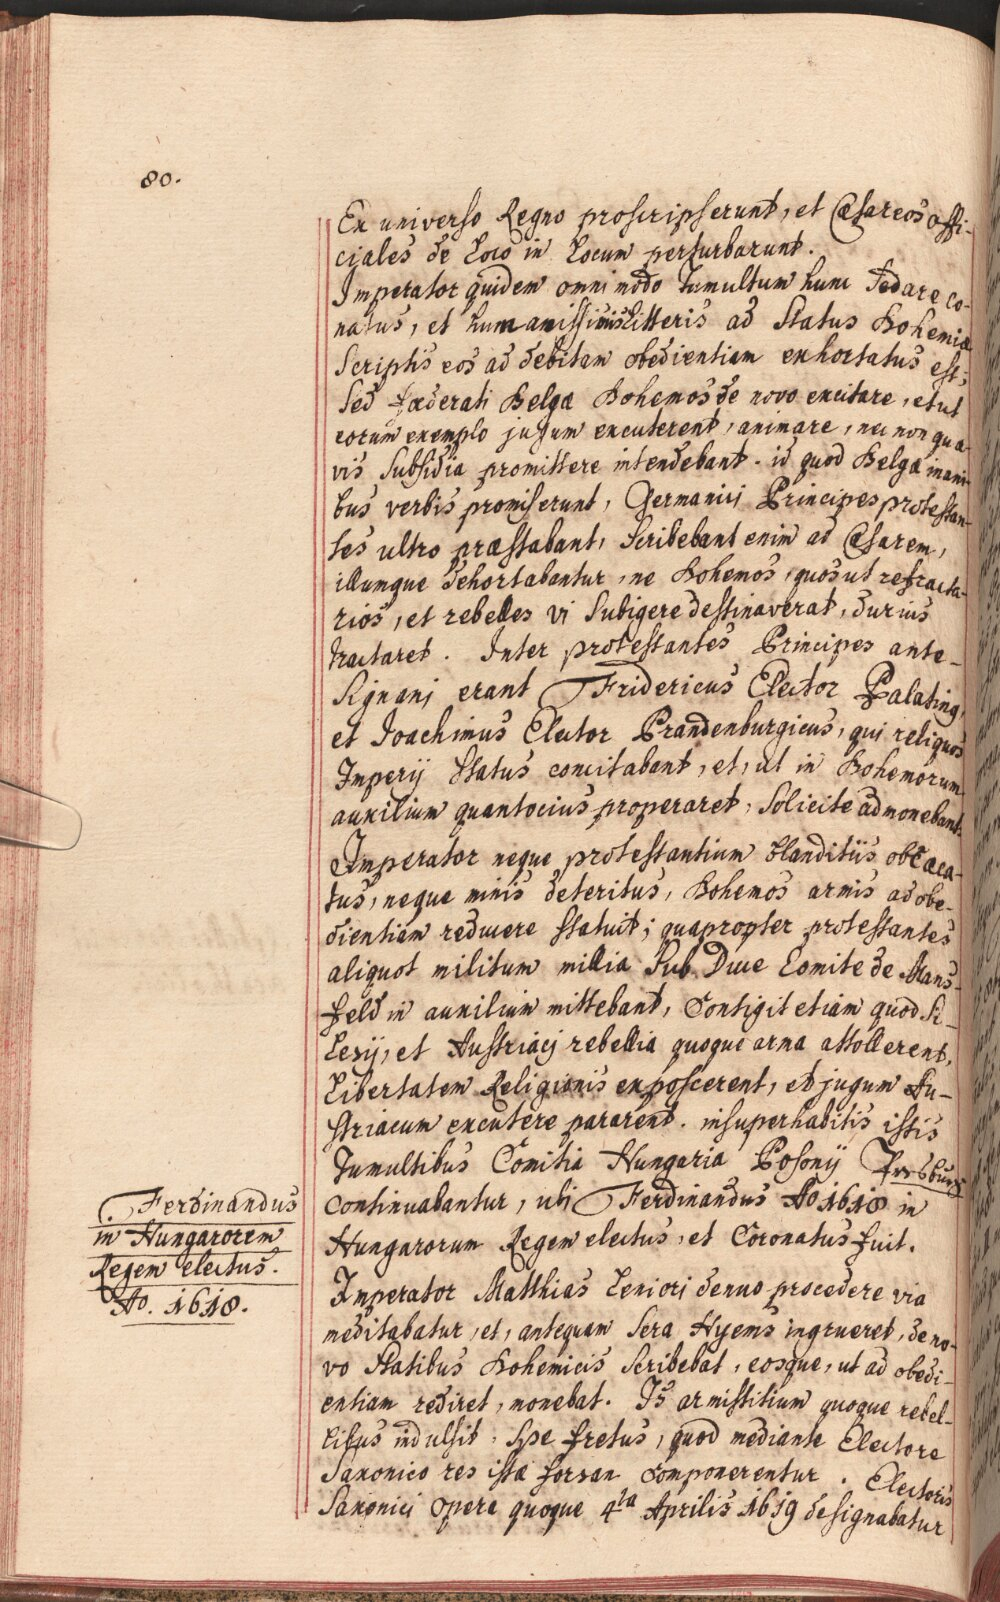 80.
Ex universo Regno proscripserunt, et Cæsareos offi-
ciales de Loco in Locum perturbarunt.
Imperator quidem omni modo Tumultum hunc Sedare co-
natus, et humanissimis Litteris ad Status Bohemiæ
Scriptis eos ad debitam obedientiam exhortatus est;
Sed fœderati Belgæ Bohemos de novo excitare, et ut
eorum exemplo jugum excuterent, animare, nec non qua-
vis Subsidia promittere intendebant. id quod Belgæ inani-
bus verbis promiserunt, Germanici Principes protestan-
tes ultro præstabant, Scribebant enim ad Cæsarem,
illumque dehortabantur, ne Bohemos, quos ut refracta-
rios, et rebelles vi Subigere destinaverat, durius
tractaret. Inter protestantes Principes ante-
Signani erant Fridericus Elector Palatinꝰ,
et Joachimus Elector Brandenburgicus, qui reliquos
Imperij Status concitabant, et, ut in Bohemorum
auxilium quantocius properaret, Solicite admonebant.
Imperator neque protestantium blanditiis obcæca-
tus, neque minis deteritus, Bohemos armis ad obe-
dientiam reducere statuit; quapropter protestantes
aliquot militum millia Sub Duce Comite de Mans-
feld in auxilium mittebant, Contigit etiam quod Si-
Lesij, et Austriacj rebellia quoque arma attollerent,
Libertatem Religionis exposcerent, et jugum Au-
striacum excutere pararent. insuperhabitis istis
Tumultibus Comitia Hungariæ Posonij Presburg
Continuabantur, ubj Ferdinandus Ao 1618 in
Hungarorum Regem electus, et Coronatus fuit.
Ferdinandus
in Hungarorem
Regem electus.
Ao. 1618.
Imperator Matthias Leniorj denuo procedere via
meditabatur, et, antequam Sera Hyems ingrueret, de no-
vo Statibus Bohemicis Scribebat, eosque, ut ad obedi-
entiam rediret, monebat. Is armistitium quoque rebel-
libus indulsit, Spe fretus, quod mediante Electore
Saxonico res ista forsan Componerentur. Electoris
Saxonici Opera quoque 4ta Aprilis 1619 designabatur